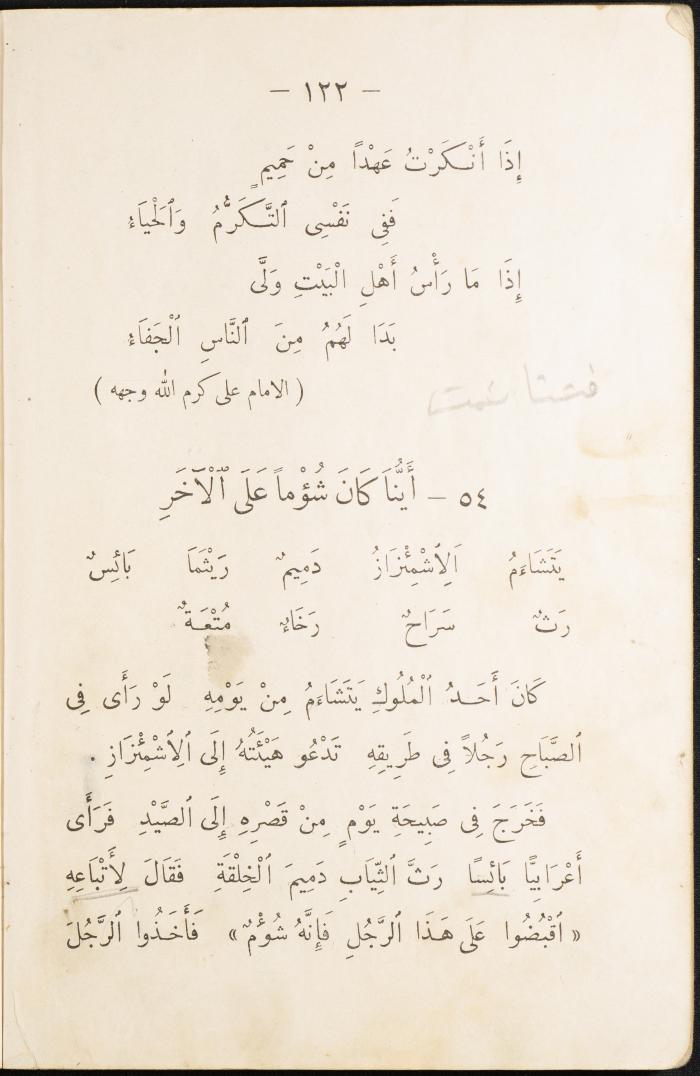 — ١٢٢ —
إِذَا أَنْكَرْتُ عَهْدًا مِنْ حَمِيمٍ
فَفِي نَفْسِى ٱلتَّكَرُّمُ وَٱلْحَيَاءُ
إِذَا مَا رَأْسُ أَهْلِ الْبَيْتِ وَلَّى
بَدَا لَهُمُ مِنَ ٱلنَّاسِ ٱلْجَفَاءُ
( الامام على كرم الله وجهه )
٥٤ — أَيُّنَا كَانَ شُؤْماً عَلَى ٱلْآخَرِ
يَتَشَاءَمُ اَلِٱشْمِئْزَازُ دَمِيمٌ رَيْثَمَا بَائِسٌ
رَثٌّ سَرَاحٌ رَخَاءٌ مُتْعَةٌ
كَانَ أَحَدُ ٱلْمُلُوكِ يَتَشَاءَمُ مِنْ يَوْمِهِ لَوْ رَأَى فِى
ٱلصَّبَاحِ رَجُلاً فِى طَرِيقِهِ تَدْعُو هَيْئَتُهُ إِلَى ٱلِٱشْمِئْزَازِ .
فَخَرَجَ فِى صَبِيحَةِ يَوْمٍ مِنْ قَصْرِهِ إِلَى ٱلصَّيْدِ فَرَأَى
أَعْرَابِيًّا بَائِسًا رَثَّ ٱلثِّيَابِ دَمِيمَ ٱلْخِلْقَةِ فَقَالَ لِأَتْبَاعِهِ
« ٱقْبُضُوا عَلَى هَذَا ٱلرَّجُلِ فَإِنَّهُ شُؤْمٌ » فَأَخَذُوا ٱلرَّجُلَ